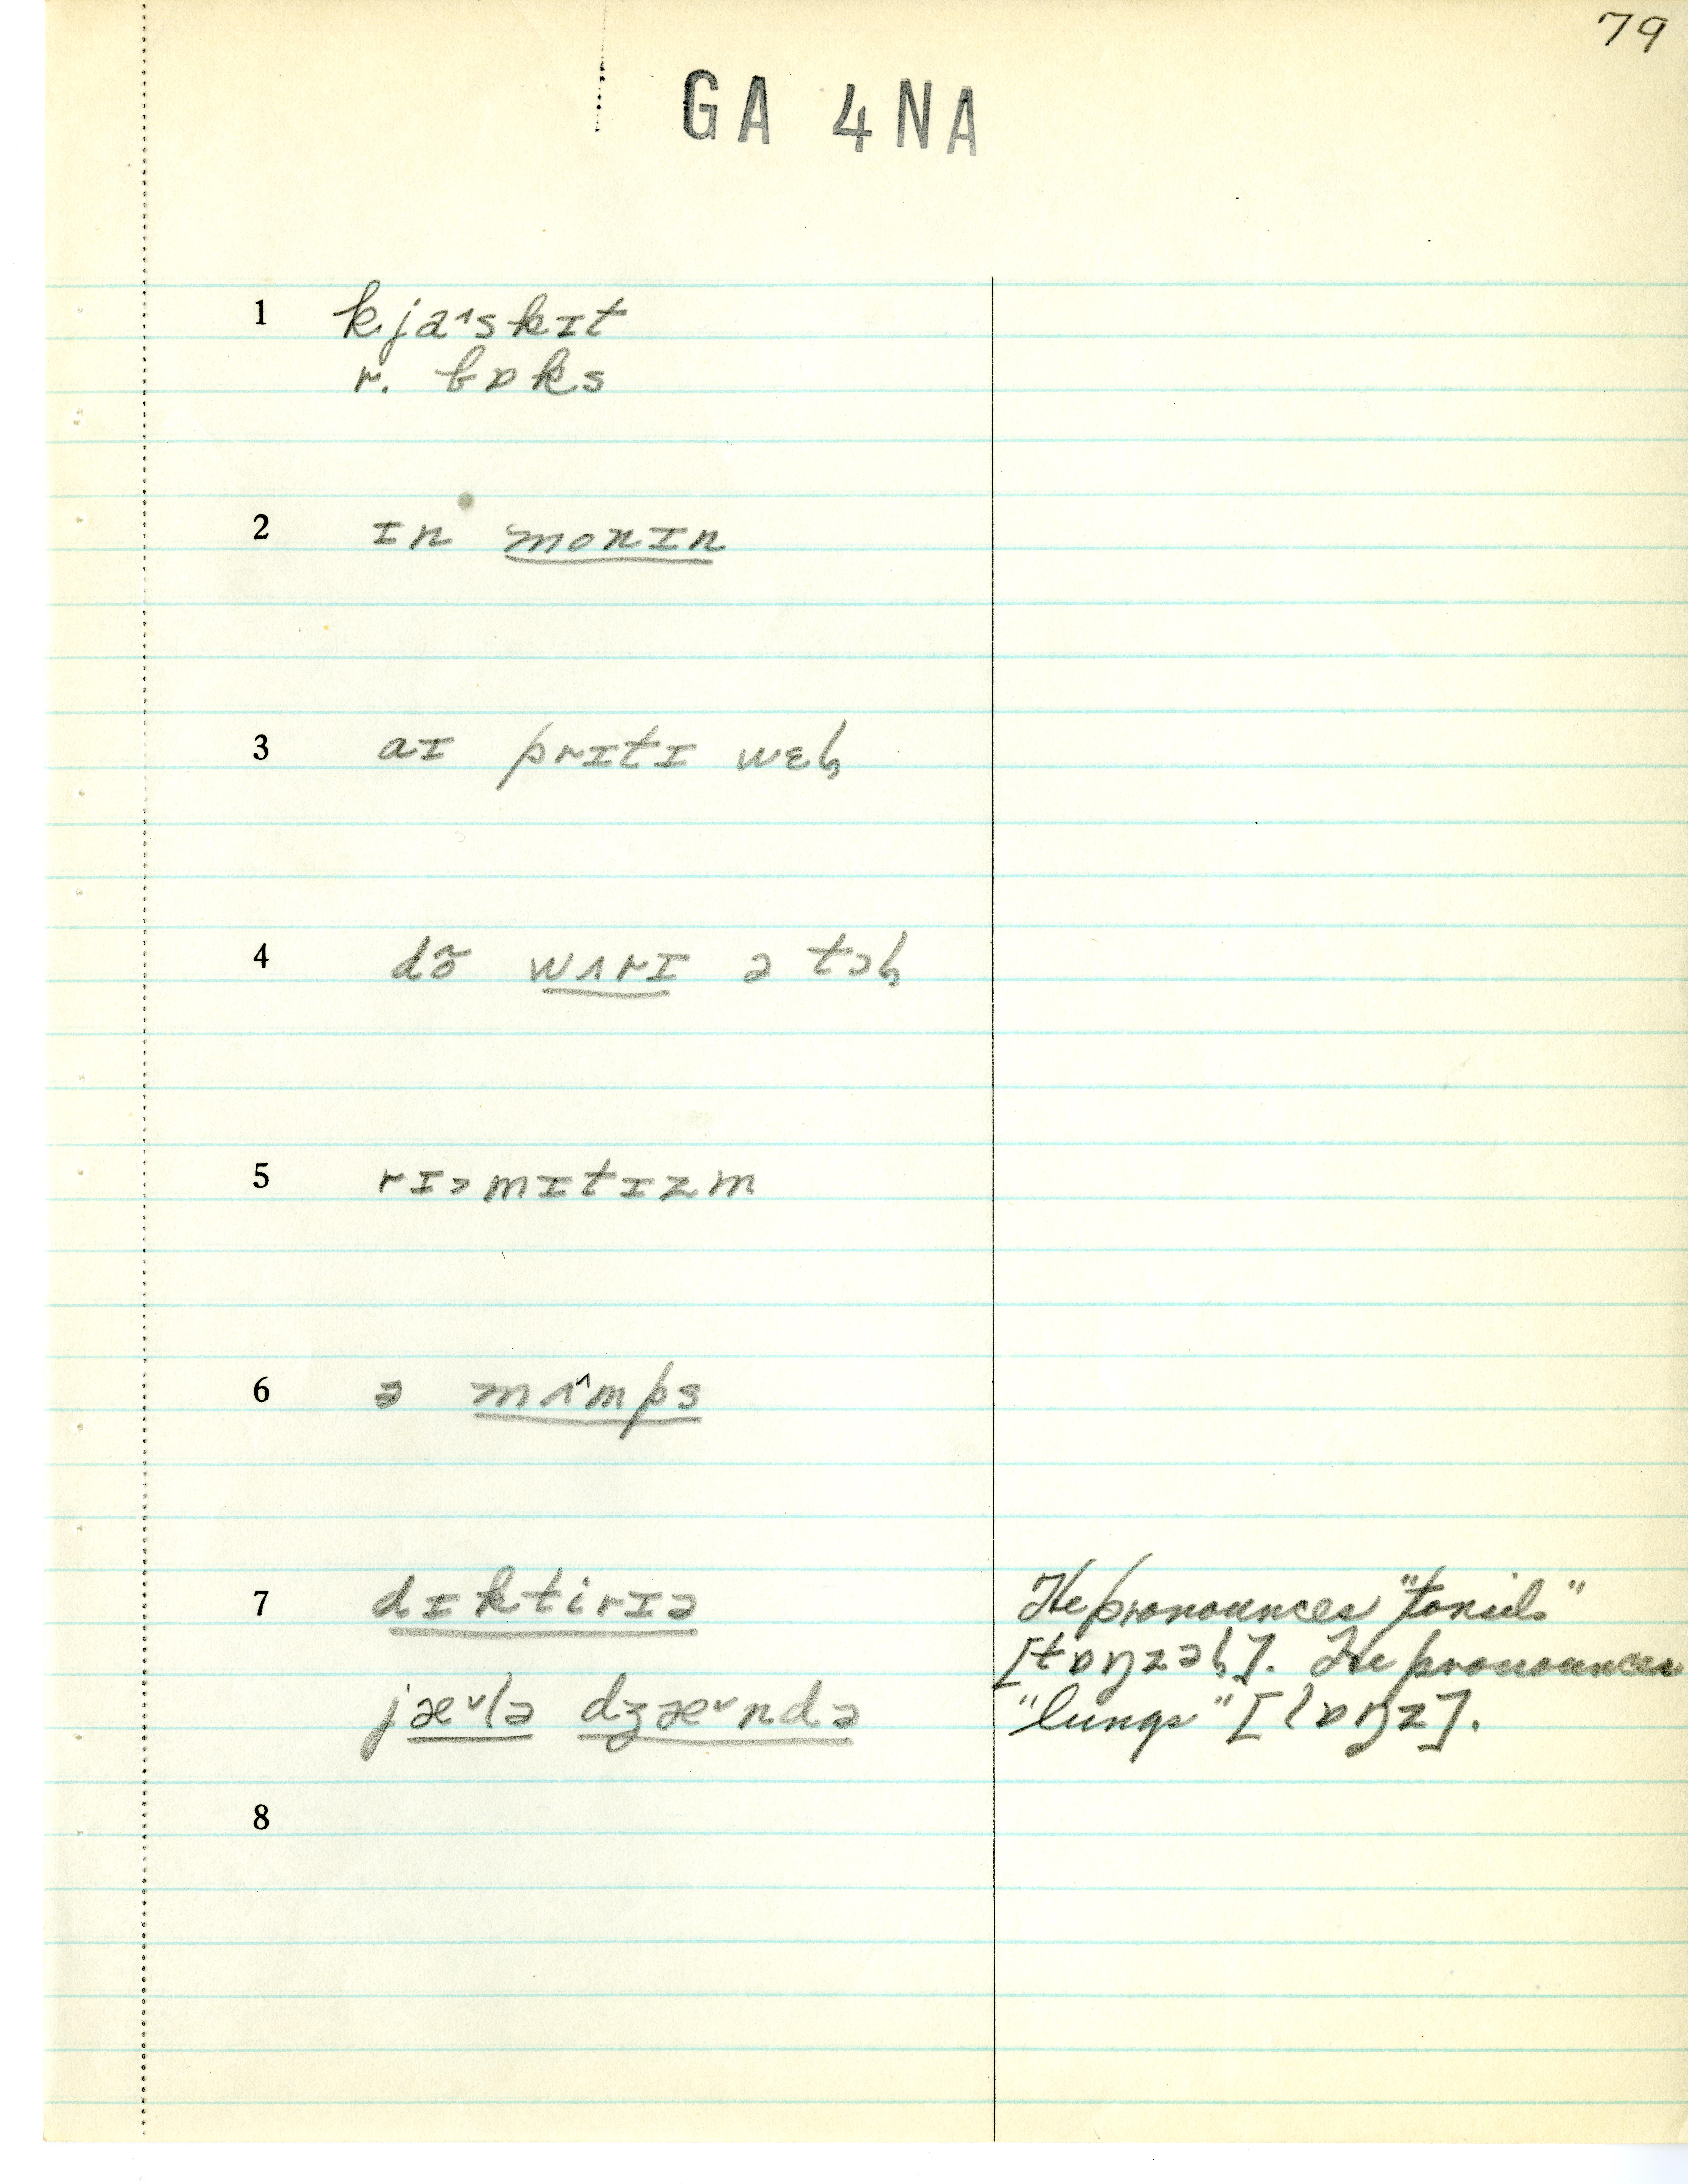 79
GA 4NA
1 k̡jaˆskɪt
r. bɒks
2 ɪn monɪn
3 aɪ prɪtɪ wɛɫ
4 dõ wʌrɪ ə tɔɫ
5 rɪəmɪtɪzm
6 ə mʌˆmps
7 dɪktirɪə
jæˇlə dʒæˇndə
He pronounces "tonsils"
[tɒŋzəɫ]. He pronounces
"lungs" [lɒŋz].
8